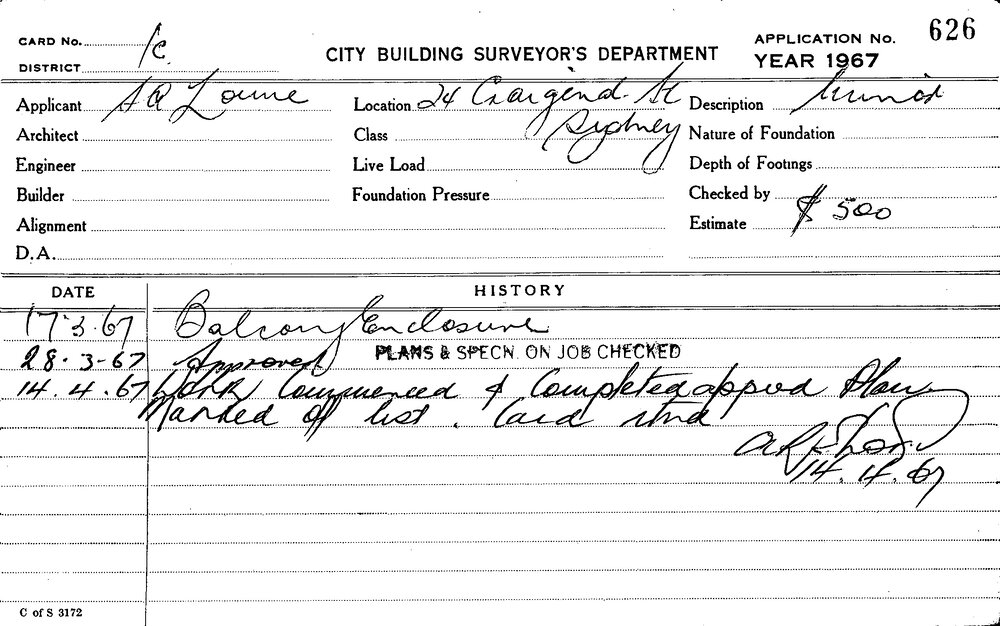 CARD No. 1c.
DISTRICT
CITY BUILDING SURVEYOR'S DEPARTMENT
APPLICATION No. 626
YEAR 1967
Applicant
Location 24 St
Sydney
Description Minor
Architect
Class
Nature of Foundation
Engineer
Live Load
Depth of Footings
Builder
Foundation Pressure
Checked by
Alignment
Estimate $ 500
D.A.
DATE HISTORY
17.3.67 Balcony Enclosure
28.3-67 Approved PLANS & SPECN. ON JOB CHECKED
14.4.67 Work Commenced & Completed appvd Plan
Marked of list. Card rtnd
14.4.67
C of S 3172